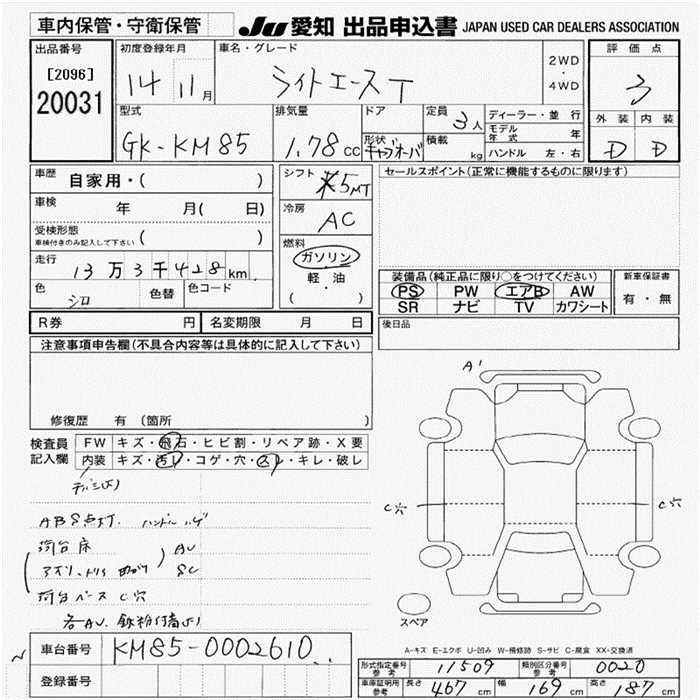 車内保管・守衛保管
JU 愛知 出品申込書 JAPAN USED CAR DEALERS ASSOCIATION
出品番号
[2096]
20031
初度登録年月
14 11月
車名・グレード
ライトエース T
2WD
・
4WD
評価点
3
外装 内装
D D
型式
GK-KM85
排気量
1.78 cc
ドア
形状
キャブオーバ
定員
3人
積載
kg
ディーラー・並行
モデル年式 年
ハンドル 左・右
車歴
自家用・( )
車検
年 月( 日)
受検形態
車検付きのみ記入して下さい ( )
走行
13万3千428km
色
シロ
色替
色コード
シフト
5MT
冷房
AC
燃料
ガソリン
軽・油
( )
セールスポイント(正常に機能するものに限ります)
装備品(純正品に限り○をつけてください)
PS PW エアB AW
SR ナビ TV カワシート
新車保証書
有・無
R券 円 名変期限 月 日
後日品
注意事項申告欄(不具合内容等は具体的に記入して下さい)
修復歴 有 (箇所 )
検査員記入欄
FW キズ・飛石・ヒビ割・リペア跡・X要
内装 キズ・汚れ・コゲ・穴・スレ・キレ・破レ
ABS点灯. ハンドルハゲ
荷台床 AU
アオリ、トリイ曲がり SC
荷台ベース C穴
各AU. 鉄粉付着あり
A'
C穴
C穴
スペア
A-キズ E-エクボ U-凹み W-補修跡 S-サビ C-腐食 XX-交換済
車台番号 KM85-0002610
登録番号
形式指定番号 参考 11509 類別区分番号 参考 0020
車庫証明用 参考 長さ 467 cm 幅 169 cm 高さ 187 cm